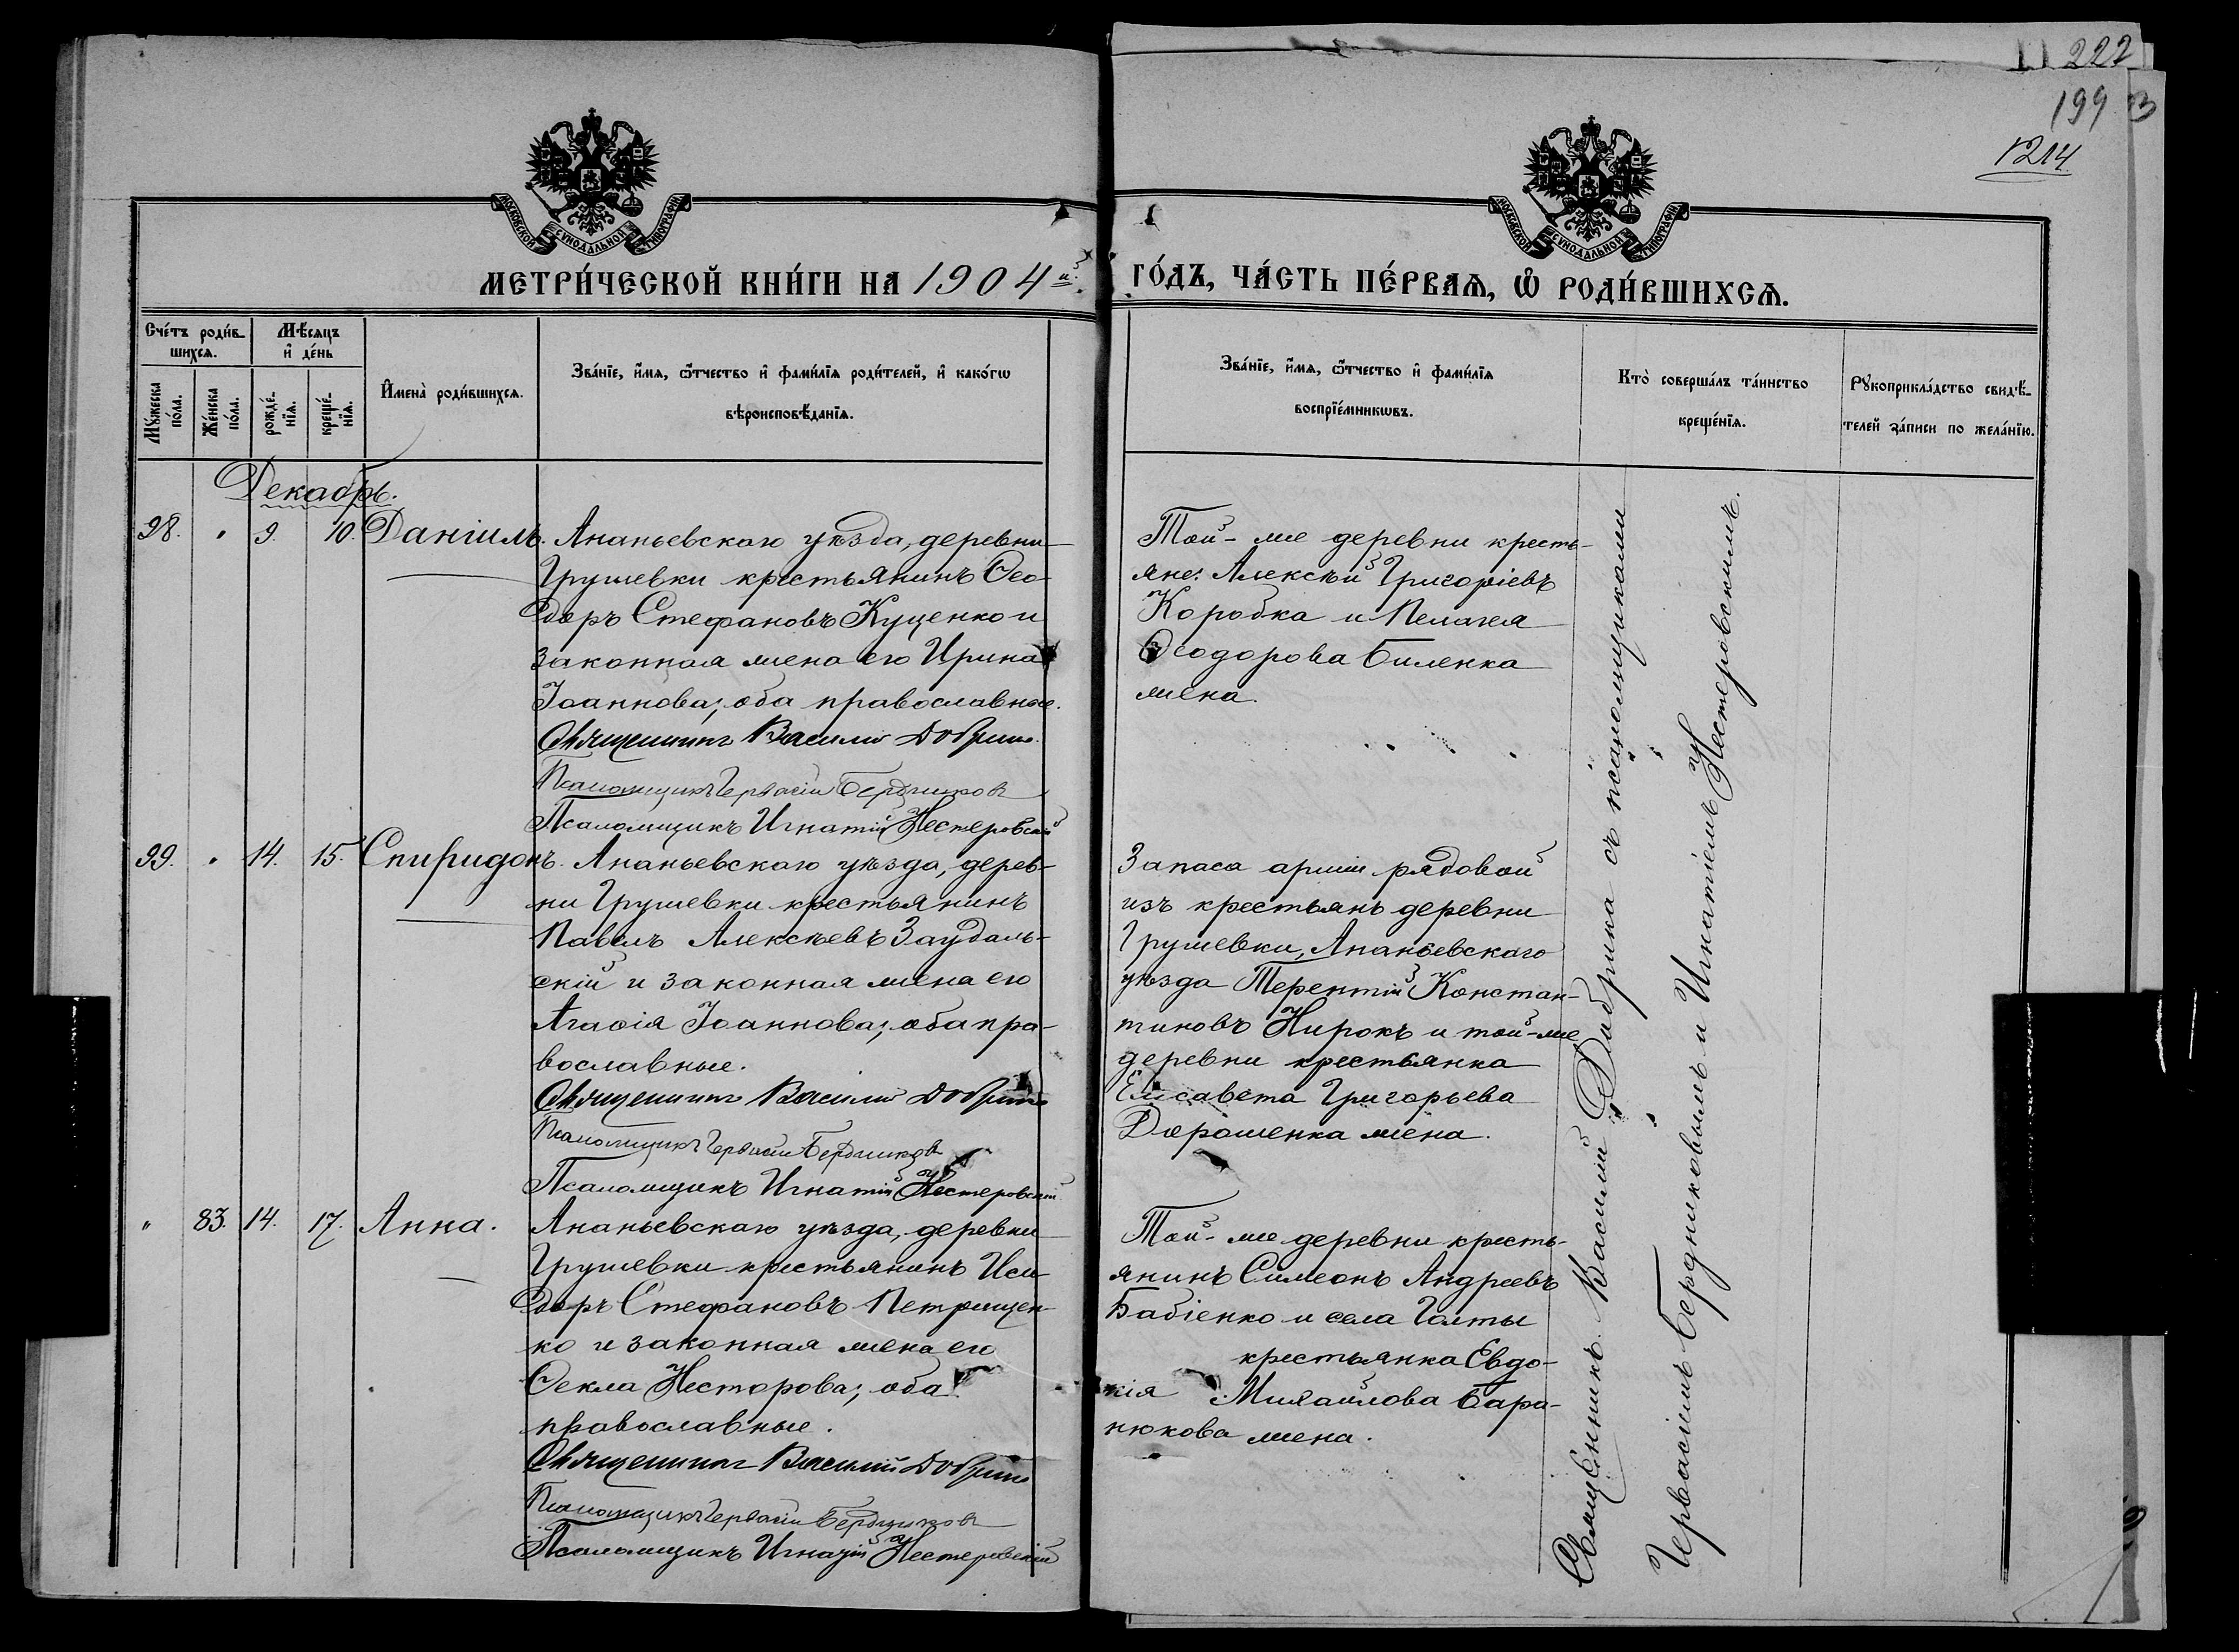 222
199
1214
МОСКОВСКОЙ СѴНОДАЛЬНОЙ ТИПОГРАФІИ
МОСКОВСКОЙ СѴНОДАЛЬНОЙ ТИПОГРАФІИ
МЕТРИ́ЧЕСКОЙ КНИ́ГИ НА 1904й
ГО́ДЪ, ЧА́СТЬ ПЕ́РВАѦ, Ѿ РОДИ́ВШИХСѦ.
Сче́тъ роди́в-
шихсѧ.
Мѣ́сѧцъ
и҆ де́нь
Мꙋ́жеска по́ла.
Же́нска по́ла.
рожде́-нїѧ.
креще́-нїѧ.
И҆мена̀ роди́вшихсѧ.
Зва́нїе, и҆́мѧ, ѻ҆́тчество и҆ фами́лїѧ роди́телей, и҆ како́гѡ
вѣроисповѣ́данїѧ.
Зва́нїе, и҆́мѧ, ѻ҆́тчество и҆ фами́лїѧ
воспрїе́мникѡвъ.
Кто̀ соверша́лъ та́инство
креще́нїѧ.
Рꙋкоприкла́дство свидѣ́-
телей за́писи по жела́нїю.
Декабрь.
98. " 9. 10. Даніилъ. Ананьевскаго уѣзда, деревни
Грушевки крестьянинъ Ѳео-
доръ Стефановъ Куценко и
законная жена его Ирина
Іоаннова; оба православные.
Священникъ Василій Добрина
Псаломщикъ Гервасій Бердниковъ
Псаломщикъ Игнатій Нестеровскій
Той-же деревни кресть-
яне: Алексѣй Григоріевъ
Коробка и Пелагея
Ѳеодорова Биленка
жена.
99. " 14. 15. Спиридонъ. Ананьевскаго уѣзда, дерев-
ни Грушевки крестьянинъ
Павелъ Алексѣевъ Заудаль-
скій и законная жена его
Агаѳія Іоаннова; оба пра-
вославные.
Священникъ Василій Добрина
Псаломщикъ Гервасій Бердниковъ
Псаломщикъ Игнатій Нестеровскій
Запаса арміи рядовой
изъ крестьянъ деревни
Грушевки, Ананьевскаго
уѣзда Терентій Констан-
тиновъ Нирокъ и той-же
деревни крестьянка
Елисавета Григорьева
Дорошенка жена.
" 83. 14. 17. Анна. Ананьевскаго уѣзда, деревни
Грушевки крестьянинъ Иси-
доръ Стефановъ Петрищен-
ко и законная жена его
Ѳекла Несторова; оба
православные.
Священникъ Василій Добрина
Псаломщикъ Гервасій Бердниковъ
Псаломщикъ Игнатій Нестеровскій
Той-же деревни кресть-
янинъ Симеонъ Андреевъ
Бабіенко и села Голты
крестьянка Евдо-
кія Михайлова Бара-
нюкова жена.
Священникъ Василій Добрина съ псаломщиками
Гервасіемъ Бердниковымъ и Игнатіемъ Нестеровскимъ.